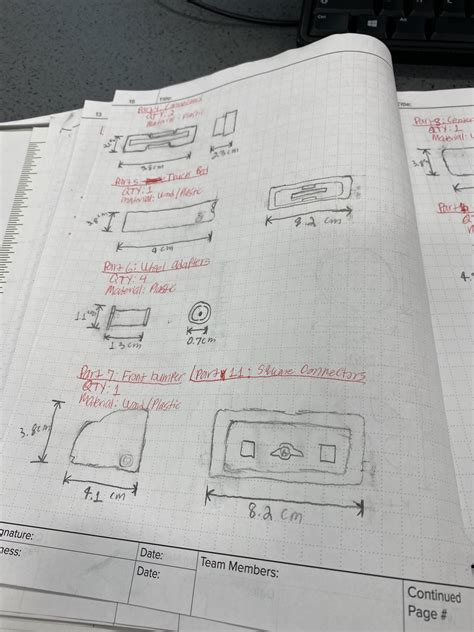 Part 4: Connectors
QTY: 2
Material: Plastic
3.8cm
2.3cm
Part 5: Truck Bed
QTY: 1
Material: Wood/Plastic
3.8cm
9 cm
8.2 cm
Part 6: Wheel Adapters
QTY: 4
Material: Plastic
1.1 cm
1.3 cm
0.7cm
Part 7: Front bumper / Part 11: Square Connectors
QTY: 1
Material: Wood/Plastic
3.8cm
4.1 cm
8.2 cm
Part 8: Center
QTY: 1
Material:
Date:
Date:
Team Members:
Continued
Page #
Ctrl
Alt